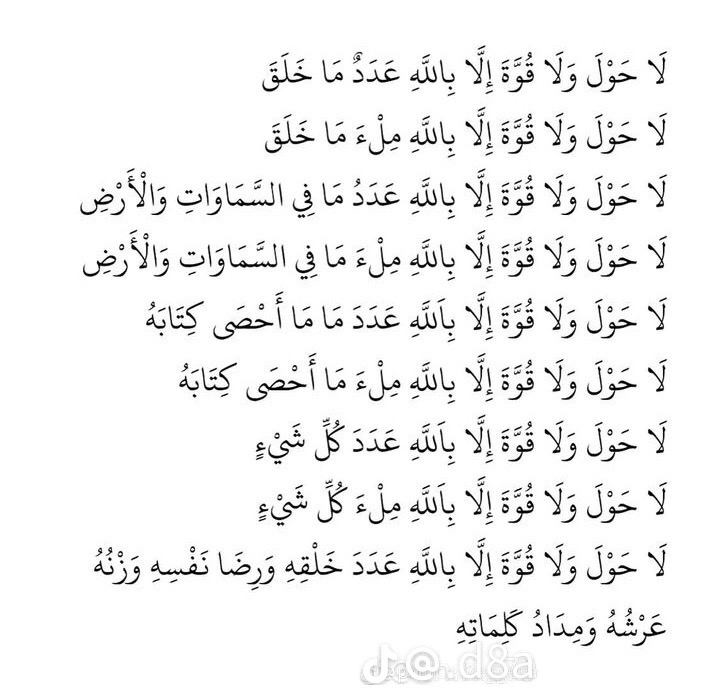 لَا حَوْلَ وَلَا قُوَّةَ إِلَّا بِاللَّهِ عَدَدٌ مَا خَلَقَ
لَا حَوْلَ وَلَا قُوَّةَ إِلَّا بِاللَّهِ مِلْءَ مَا خَلَقَ
لَا حَوْلَ وَلَا قُوَّةَ إِلَّا بِاللَّهِ عَدَدُ مَا فِي السَّمَاوَاتِ وَالْأَرْضِ
لَا حَوْلَ وَلَا قُوَّةَ إِلَّا بِاللَّهِ مِلْءَ مَا فِي السَّمَاوَاتِ وَالْأَرْضِ
لَا حَوْلَ وَلَا قُوَّةَ إِلَّا بِاَللَّهِ عَدَدَ مَا مَا أَحْصَى كِتَابَهُ
لَا حَوْلَ وَلَا قُوَّةَ إِلَّا بِاللَّهِ مِلْءَ مَا أَحْصَى كِتَابَهُ
لَا حَوْلَ وَلَا قُوَّةَ إِلَّا بِاَللَّهِ عَدَدَ كُلِّ شَيْءٍ
لَا حَوْلَ وَلَا قُوَّةَ إِلَّا بِاَللَّهِ مِلْءَ كُلِّ شَيْءٍ
لَا حَوْلَ وَلَا قُوَّةَ إِلَّا بِاللَّهِ عَدَدَ خَلْقِهِ وَرِضَا نَفْسِهِ وَزْنُهُ
عَرْشُهُ وَمِدَادُ كَلِمَاتِهِ
@_d8a